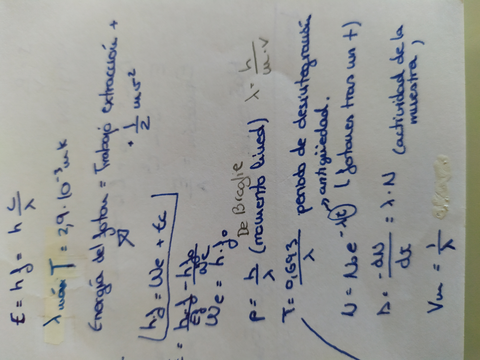 E = hf = h c/λ
λmáx T = 2,9·10⁻³ m k
Energía del foton = Trabajo extracción +
+ 1/2 mv²
h·f = We + Ec
= h·f - hf₀
Ec We
We = h·f₀
De Broglie
P = h/λ (momento lineal) λ = h/m·v
T = 0,693/λ periodo de desintegración
antigüedad.
N = N₀e^-λt (fotones tras un t)
= dN/dt = λ·N (actividad de la
muestra)
Vm = 1/λ